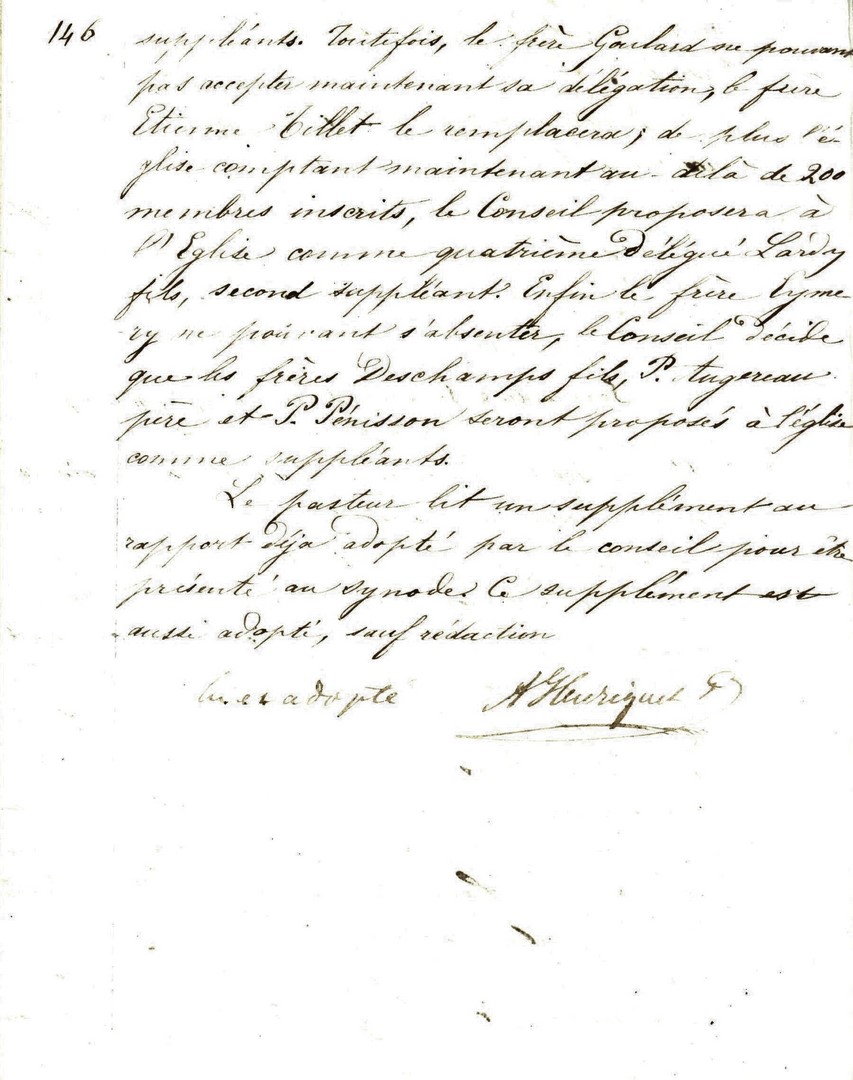 146
suppléants. Toutefois, le frère Goulard ne pouvant
pas accepter maintenant sa délégation, le frère
Etienne Tillet le remplacera; de plus l'é-
glise comptant maintenant au-delà de 200
membres inscrits, le Conseil proposera à
l'Eglise comme quatrième Délégué Lardy
fils, second suppléant. Enfin le frère Eyme-
ry ne pouvant s'absenter, le Conseil décide
que les frères Deschamps fils, P. Augereau
père et P. Pénisson seront proposés à l'église
comme suppléants.
Le pasteur lit un supplément au
rapport déja adopté par le conseil pour être
présenté au synode. Ce supplément est
aussi adopté, sauf rédaction
Lu et adopté A Henriquet